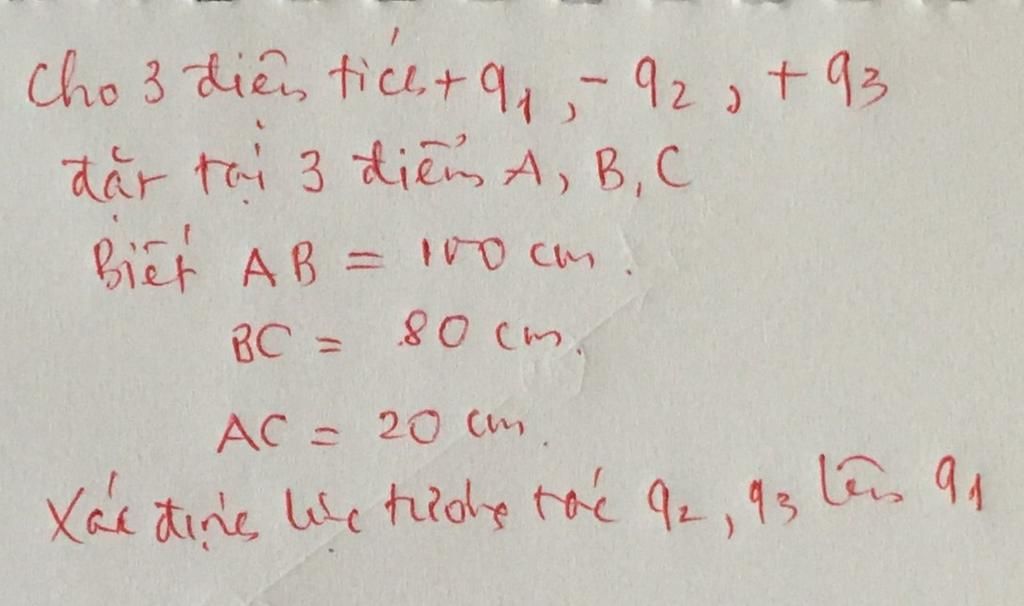 Cho 3 điện tích +q1, -q2, +q3
đặt tại 3 điểm A, B, C
Biết AB = 100 cm.
BC = 80 cm.
AC = 20 cm.
Xác định lực tương tác q2, q3 lên q1